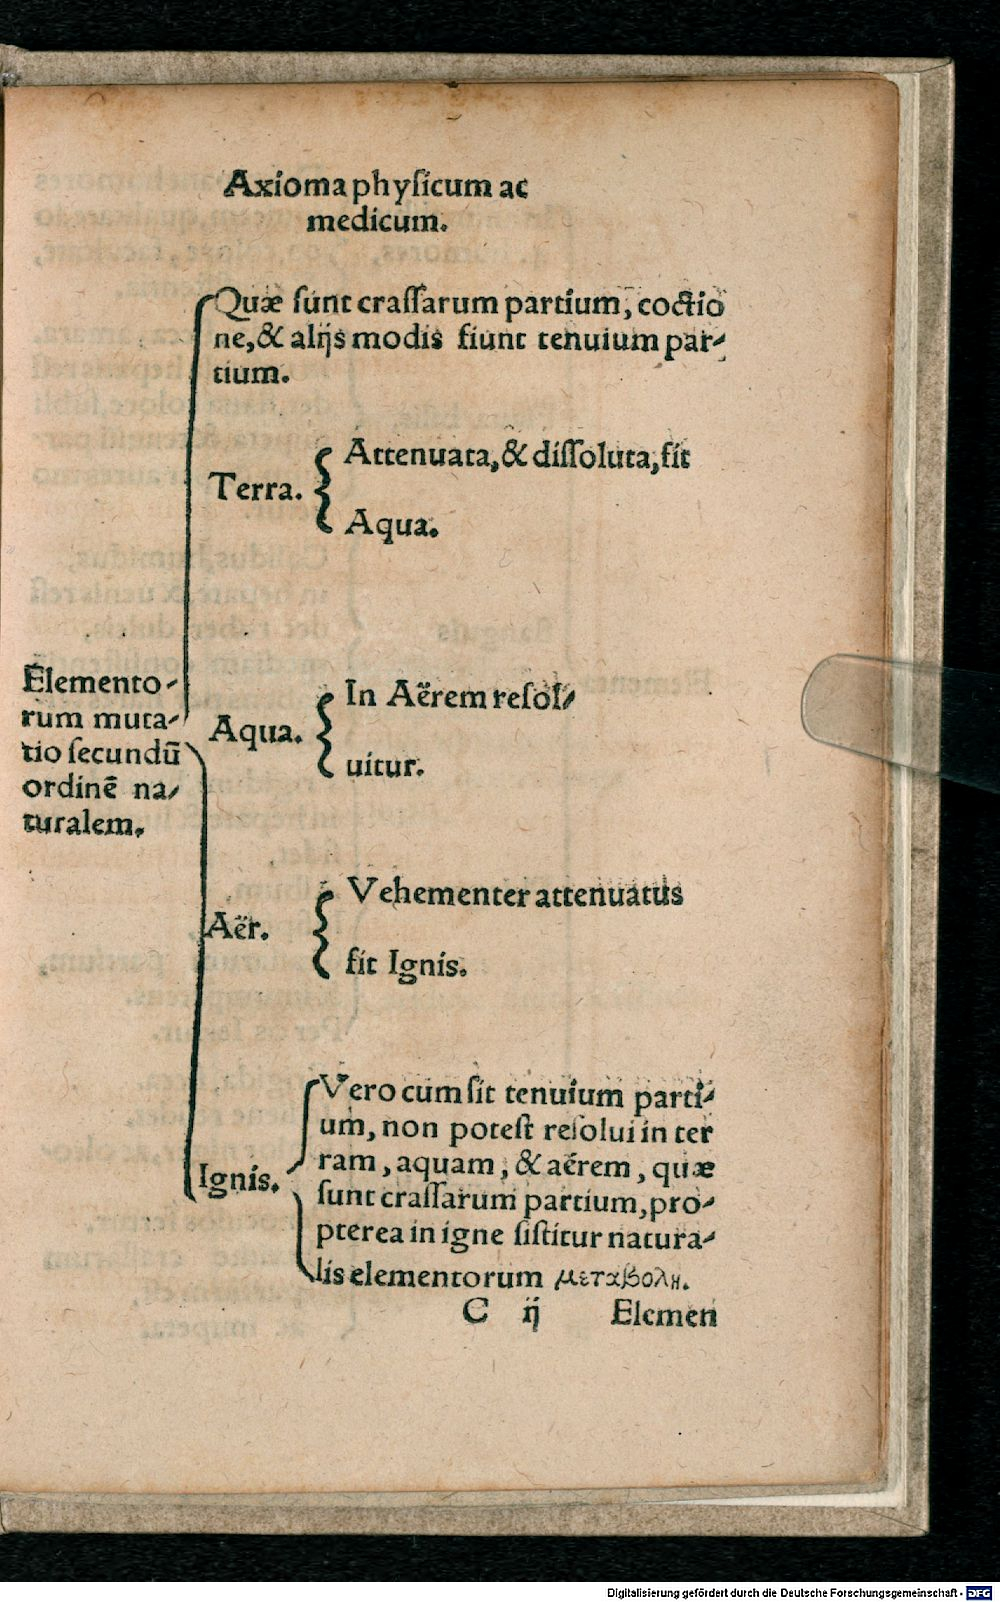 Axioma physicum ac
medicum.
Quæ sunt crassarum partium, coctio
ne, & alijs modis fiunt tenuium par-
tium.
Terra.
Attenuata, & dissoluta, fit
Aqua.
Elemento-
rum muta-
tio secundū
ordinē na-
turalem.
Aqua.
In Aërem resol-
uitur.
Aër.
Vehementer attenuatus
fit Ignis.
Ignis.
Vero cum sit tenuium parti-
um, non potest resolui in ter
ram, aquam, & aërem, quæ
sunt crassarum partium, pro-
pterea in igne sistitur natura-
lis elementorum μεταβολη.
C ij Elemen
Digitalisierung gefördert durch die Deutsche Forschungsgemeinschaft - DFG